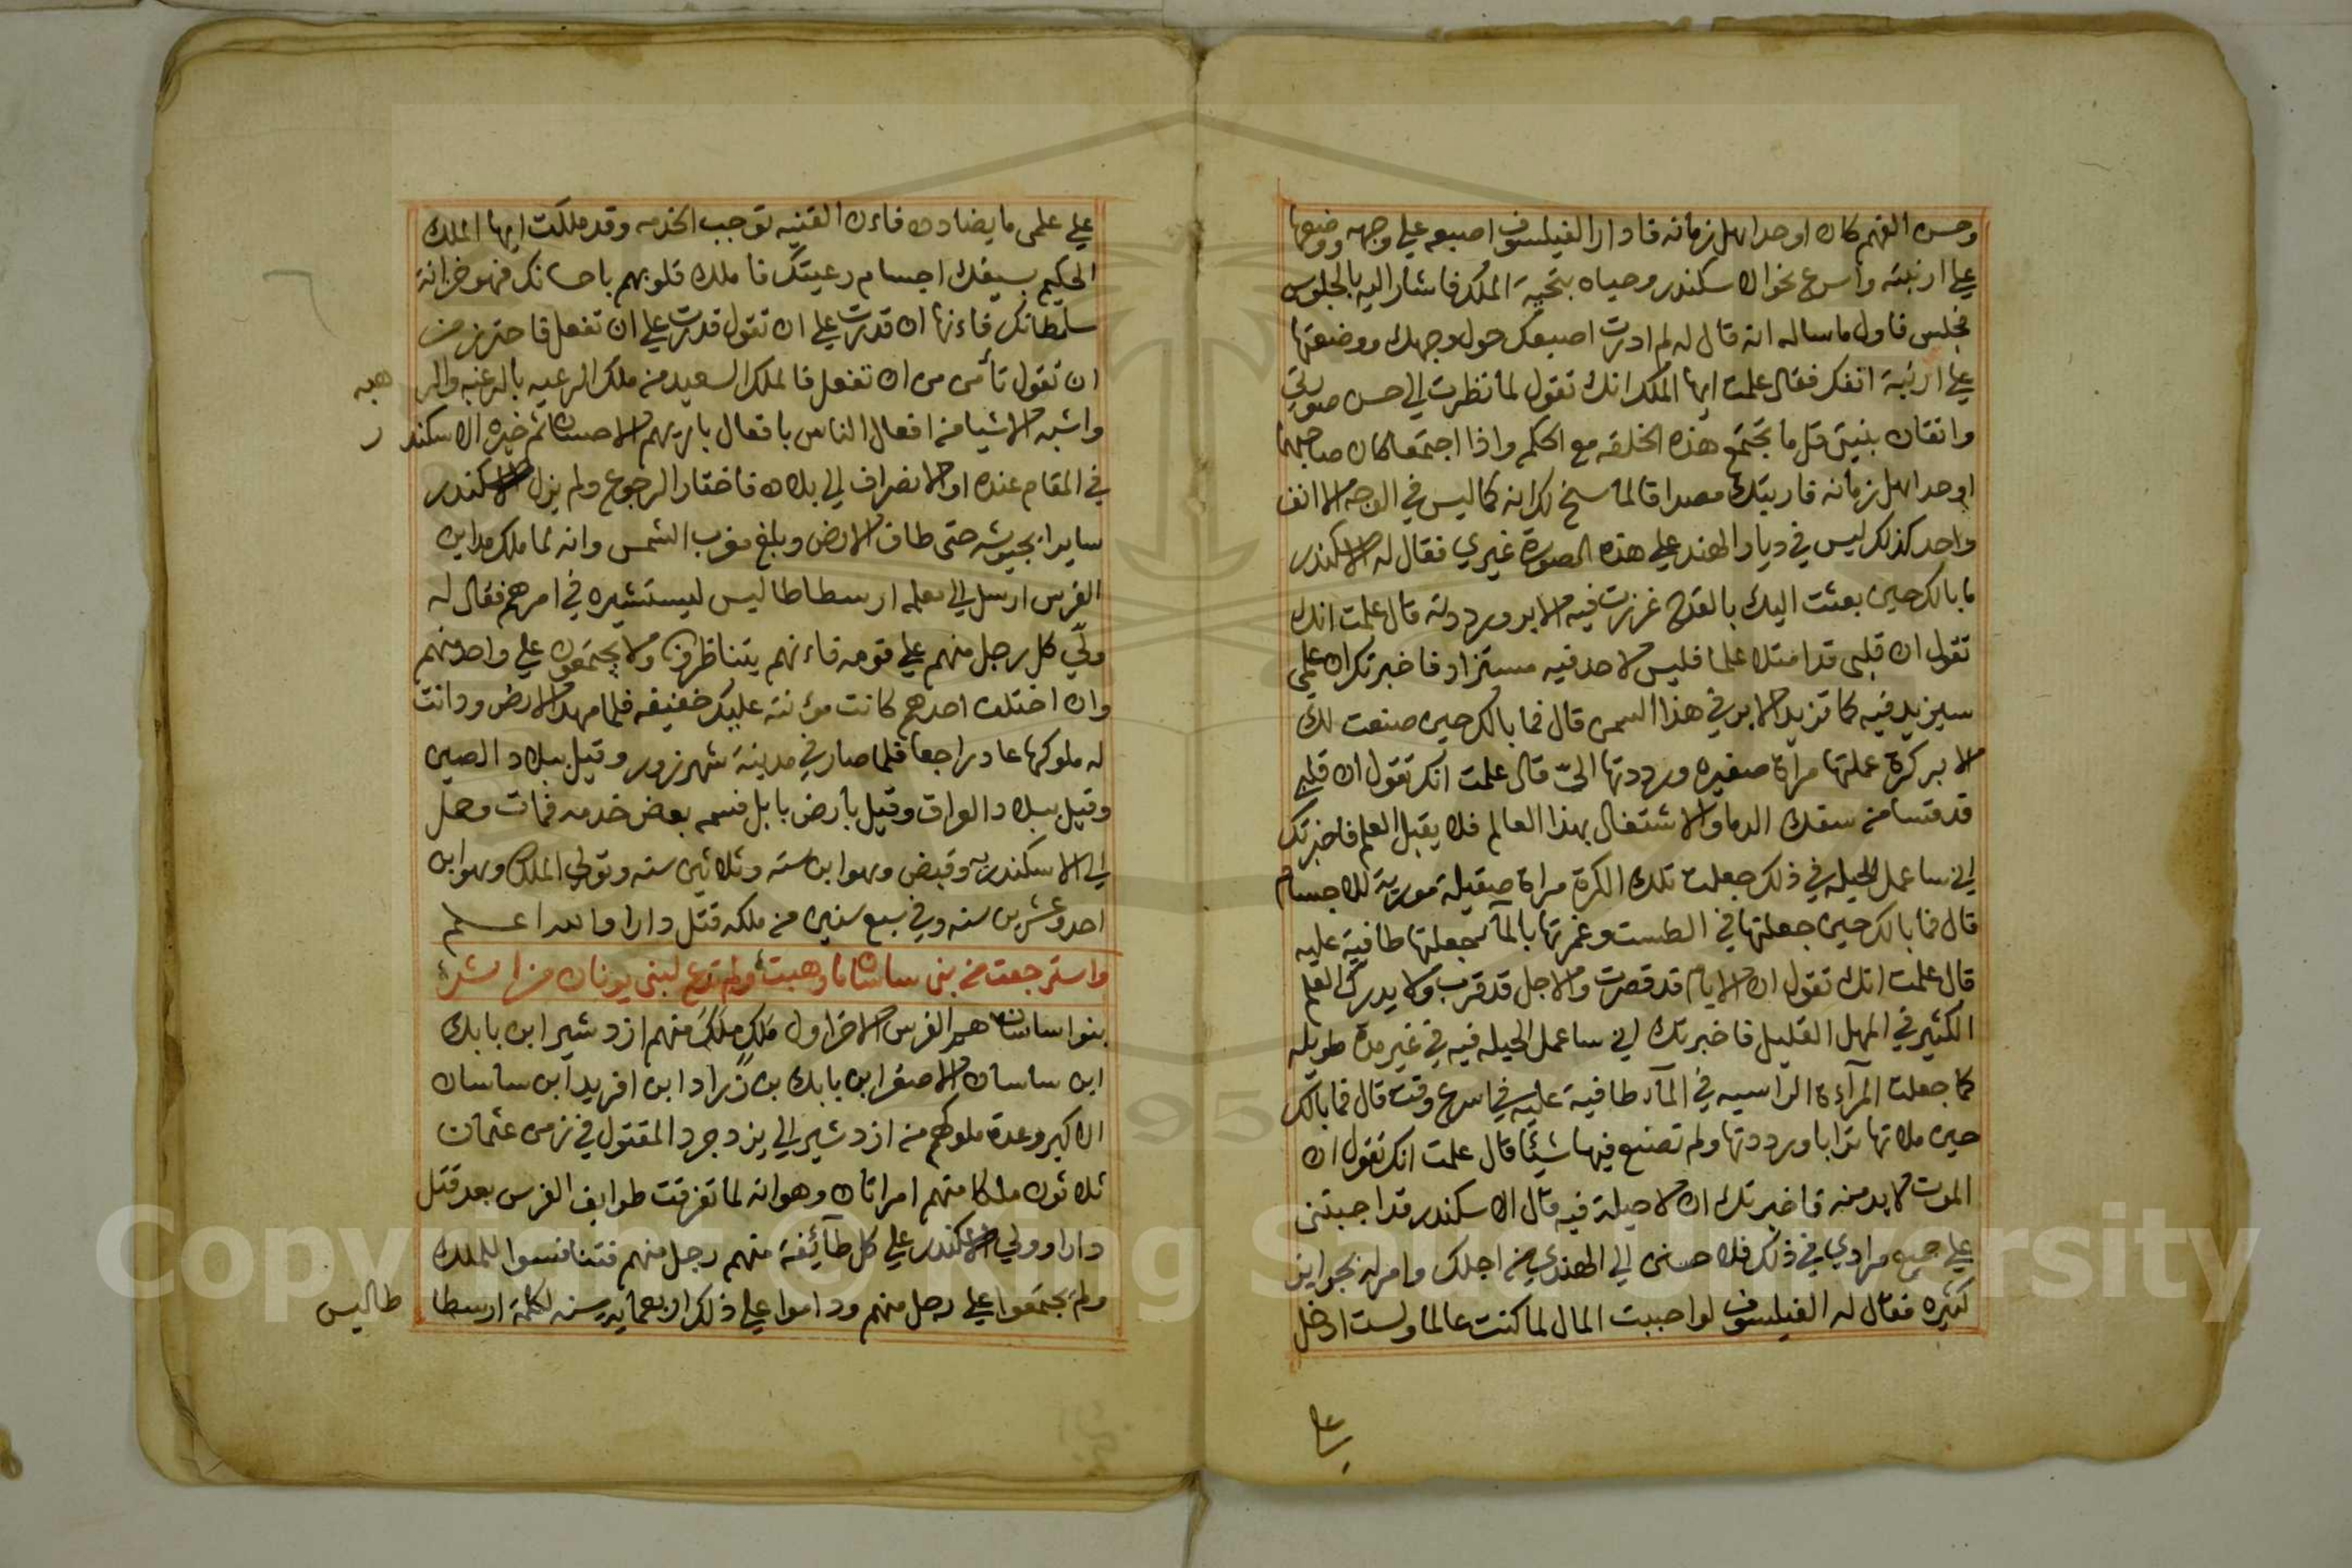 وحسن الفهم كان اوحد اهل زمانه فادار الفيلسوف اصبعه علي وجهه ووضعها
علي ارنبته واسرع نحو الاسكندر وحياه بتحية الملك فاشار اليه بالجلوس
فجلس فاول ما ساله انه قال له لم ادرت اصبعك حول وجهك ووضعتها
علي ارنبة انفك فقال علمت ايها الملك انك تقول لما نظرت الي حسن صورتي
واتقان بنيتي قل ما تجتمع هذه الخلقه مع الحكم واذا اجتمعا كان صاحبها
اوحد اهل زمانه فاريتك مصداقا لما سنح لك انه كما ليس في الوجه الا انف
واحد كذلك ليس في ديار الهند علي هذه الصورة غيري فقال له الاسكندر
ما بالك حين بعثت اليك بالقدح غرزت فيه الابر ورددته قال علمت انك
تقول ان قلبي قد امتلا علما فليس لاحد فيه مستزاد فاخبرتك ان علمي
سيزيد فيه كما تزيد الابر في هذا السمن قال فما بالك حين صنعت لك
الابر كرة عملتها مراة صغيره ورددتها اليّ قال علمت انك تقول ان قلبي
قد قسا من سفك الدما والاشتغال بهذا العالم فلا يقبل العلم فاخبرتك
اني ساعمل الحيله في ذلك جعلت تلك الكرة مراة صقيلة مورية للاجسام
قال فما بالك حين جعلتها في الطست وغمرتها بالمآ جعلتها طافية عليه
قال علمت انك تقول ان الايام قد قصرت والاجل قد قرب ولا يدرك العلم
الكثير في المهل القليل فاخبرتك اني ساعمل الحيله فيه في غير مدة طويله
كما جعلت المرآءة الراسيه في المآء طافية عليه في اسرع وقت قال فما بالك
حين ملاتها ترابا ورددتها ولم تصنع فيها شيئا قال علمت انك تقول ان
الموت لابد منه فاخبرتك ان لا حيلة فيه قال الاسكندر قد اجبتني
علي جميع مرادي في ذلك فلا حسنن الي الهند من اجلك وامر له بجوايز
كثيره فقال له الفيلسوف لو احببت المال لما كنت عالما ولست ادخل
علي
علي علمي ما يضاده فاءن القنيه توجب الخدمه وقد ملكت ايها الملك
الحكيم بسيفك اجسام رعيتك فاملك قلوبهم باحسانك فهو خزانة
سلطانك فاءنها ان قدرت علي ان تقول قدرت علي ان تفعل فاحترز من
ان تقول تأمن من ان تفعل فالملك السعيد من ملك الرعيه بالرغبه والر هبه
واشبه الاشيا من افعال الناس بافعال باريهم الاحسان ثم خيره الاسكند ر
في المقام عنده او الانصراف الي بلاده فاختار الرجوع ولم يزل الاسكندر
سايرا بجيوشه حتي طاف الارض وبلغ مغرب الشمس وانه لما ملك مداين
الفرس ارسل الي معلمه ارسطاطاليس ليستشيره في امرهم فقال له
ولّي كل رجل منهم علي قومه فاءنهم يتناظرون ولا يجتمعون علي واحد منهم
وان اختلف احدهم كانت مؤنته عليك خفيفه فلما مهد الارض ودانت
له ملوكها عاد راجعا فلما صار في مدينة شهرزور وقيل ببلاد الصين
وقيل ببلاد العراق وقيل بارض بابل فسمه بعض خدمه فمات وحمل
الي الاسكندريه وقبض وهو ابن سته وثلاثين سنه وتولي الملك وهو ابن
احد وعشرين سنه وفي سبع سنين من ملكه قتل دارا والله اعلم
واسترجعت من بني ساسان ما وهبت ولم تدع لبني يونان من اثر
بنوا ساسان هم الفرس الاخر اول ملك ملك منهم ازدشير ابن بابك
ابن ساسان الاصغر ابن بابك بن زراد ابن افريد ابن ساسان
الاكبر وعدة ملوكهم من ازدشير الي يزدجرد المقتول في زمن عثمان
ثلاثون ملكا منهم امراتان وهو انه لما تفرقت طوايف الفرس بعد قتل
دارا وولي الاسكندر علي كل طآئفة منهم رجل منهم فتنافسوا للملك
ولم يجتمعوا علي رجل منهم وداموا علي ذلك اربعمايه سنه لكلمة ارسطا طاليس